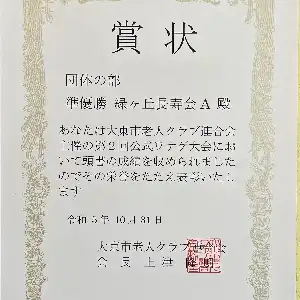 賞状
団体の部
準優勝 緑ヶ丘長寿会A 殿
あなたは大東市老人クラブ連合会
主催の第2回公式ワナゲ大会にお
いて頭書の成績を収められました
のでその栄誉をたたえ表彰いたし
ます
令和5年10月31日
大東市老人クラブ連合会
会長 上津